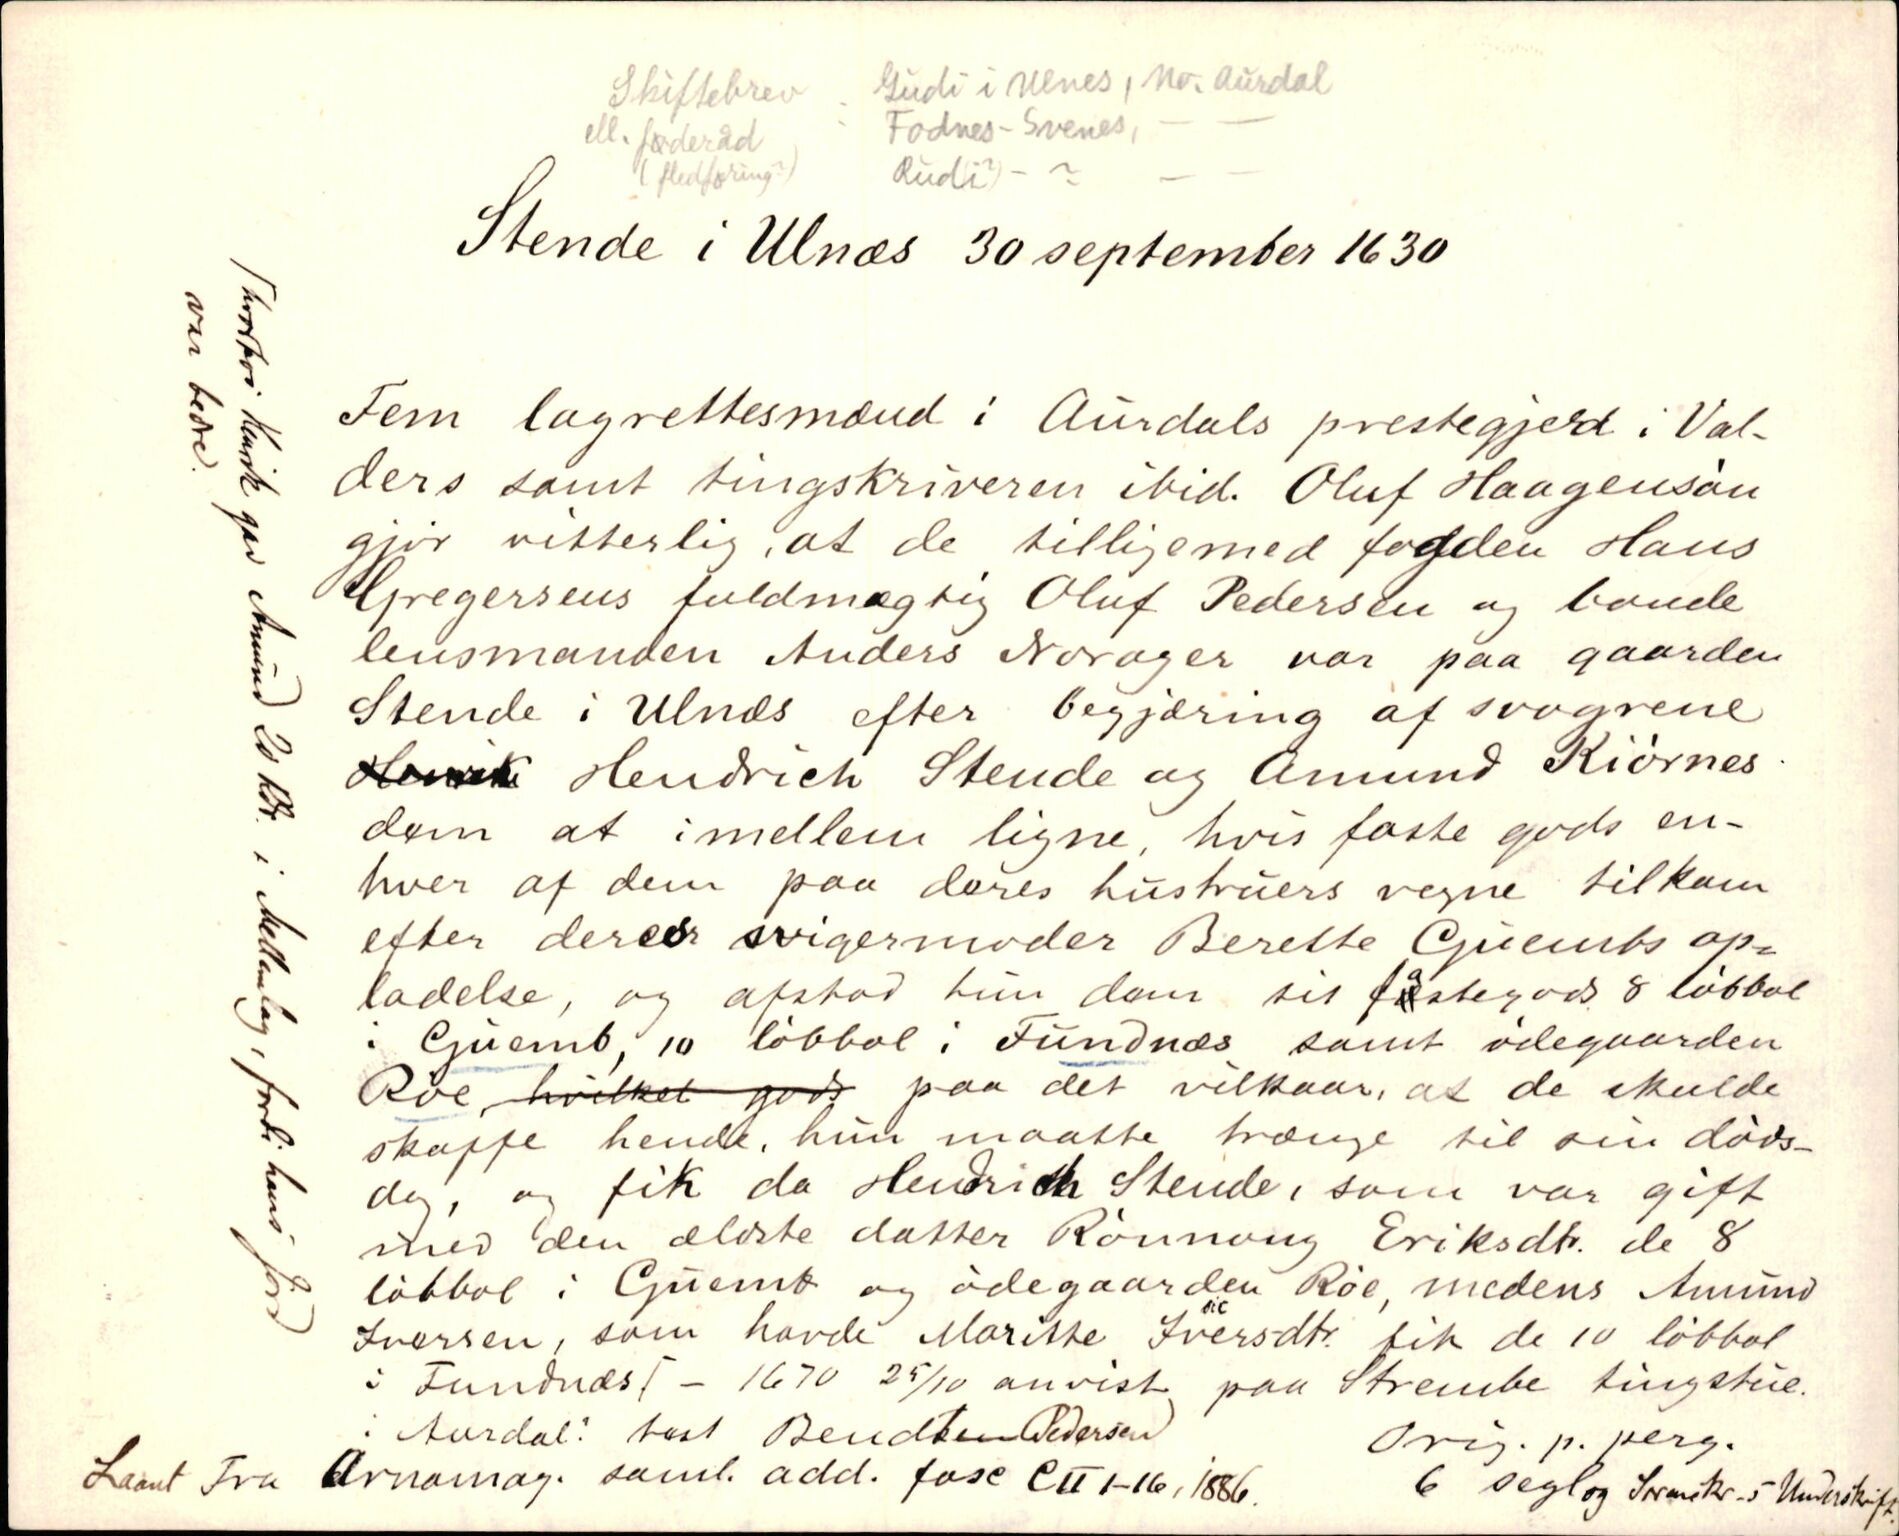 Skiftebrev . Gudi i Ulnes, No. Aurdal
ell. føderåd - Fodnes - Svenes, — —
(fledføring?) Rudi(?) - ~ — —
Stende i Ulnæs 30 september 1630
Fem lagrettesmænd i Aurdals prestegjeld i Val-
ders samt tingskriveren ibid. Oluf Haagensøn
gjør vitterlig, at de tilligemed fogden Hans
Gregersens fuldmægtig Oluf Pedersen og bonde
lensmanden Anders Norager var paa gaarden
Stende i Ulnæs efter begjæring af svogrene
Henrik Hendrich Stende og Amund Kiørnes
dem at imellem ligne, hvis faste gods en-
hver af dem paa deres hustruers vegne tilkom
efter deres svigermoder Berette Guembs op-
ladelse, og afstod hun dem sit fastegods 8 løbbol
i Guemb, 10 løbbol i Fundnæs samt ødegaarden
Røe, hvilket gods paa det vilkaar, at de skulde
skaffe hende, hun maatte trænge til sin døds-
dag, og fik da Hendrich Stende, som var gift
med den ældste datter Rønnoug Eriksdtr. de 8
løbbol i Guemb og ødegaarden Røe, medens Amund
Iversen, som havde Maritte Iversdtr. sic fik de 10 løbbol
i Fundnæs⌈ - 1670 25/10 anvist paa Strembe tingstue
i Aurdal: test Bendt Pedersen
Orig. p. perg.
Laant Fra Arnamag. saml. add. fasc C II 1-16, 1886.
6 segl og Sorenskr. - 5 Underskrift.
⌈ hvorfor Henrik gav Amund 20 Rdr. i Mellemlag, fordi hans Jord
var bedre.